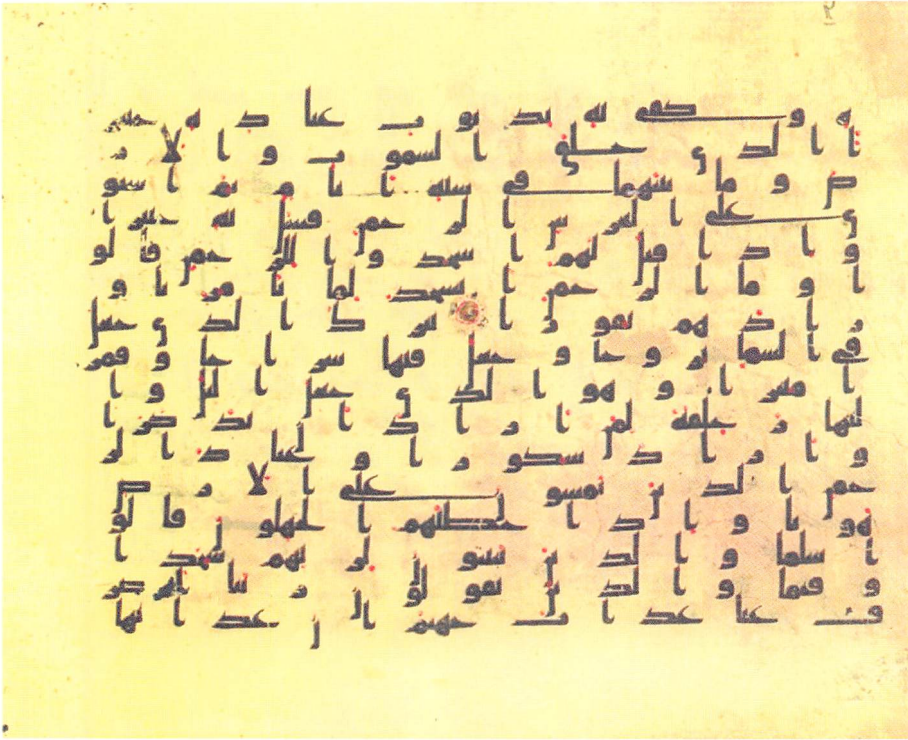 ه وكفى به بذنوب عباده خبير
ا الذي خلق السموت والار
ض وما بينهما في ستة ايام ثم استو
ى على العرش الرحمن فسل به خبيرا
واذا قيل لهم اسجدوا للرحمن قالو
ا وما الرحمن انسجد لما تامرنا و
زادهم نفورا تبرك الذي جعل
في السما بروجا وجعل فيها سراجا وقمر
ا منيرا وهو الذي جعل اليل وا
لنهار خلفة لمن اراد ان يذكر ا
و اراد شكورا وعباد الر
حمن الذين يمشون على الارض
هونا واذا خطبهم الجهلون قالو
ا سلما والذين يبيتون لربهم سجدا
وقيما والذين يقولون ربنا اصر
ف عنا عذاب جهنم ان عذابها